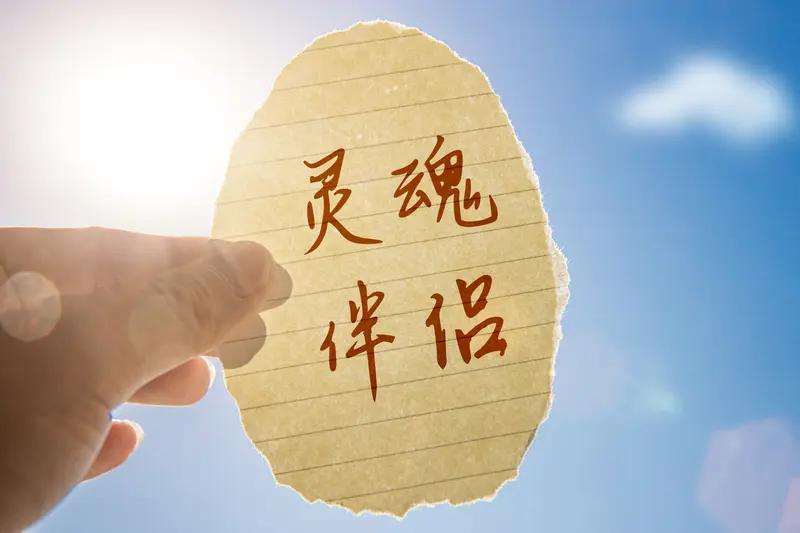 灵魂
伴侣